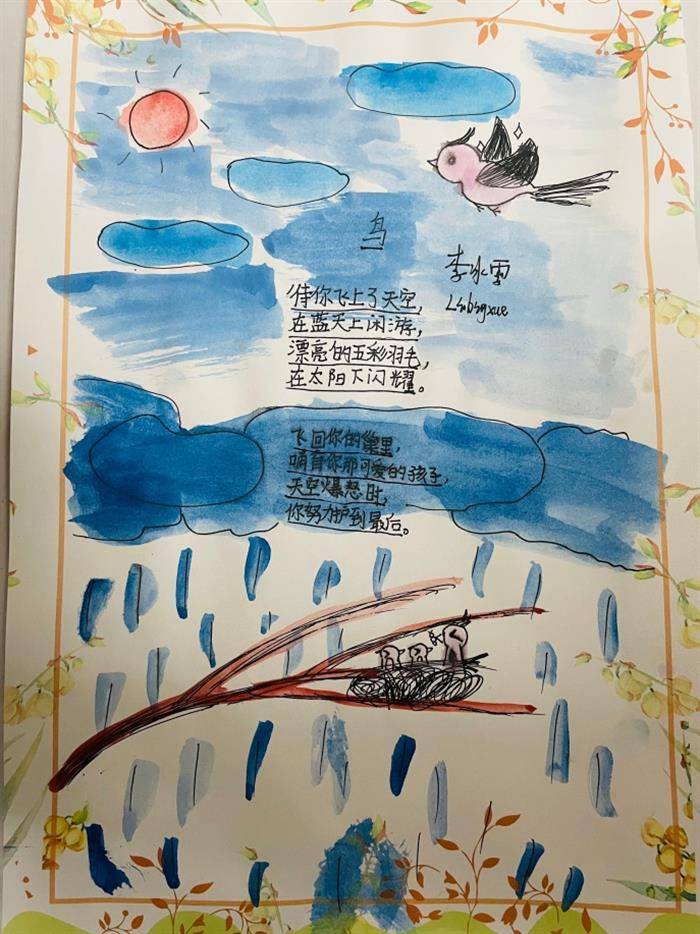 鸟
李冰雪
Libingxue
待你飞上了天空,
在蓝天上闲游,
漂亮的五彩羽毛,
在太阳下闪耀。
飞回你的巢里,
哺育你那可爱的孩子,
天空爆怒时,
你努力护到最后。